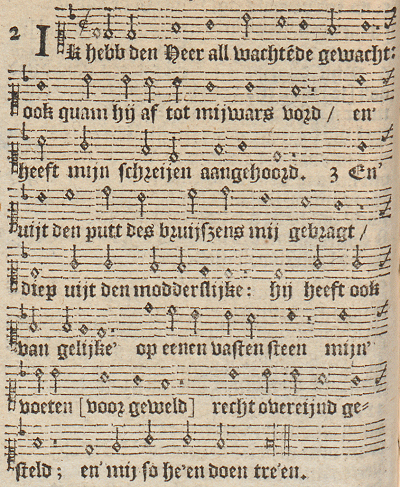 2 Ik hebb den Heer all wachtẽde gewacht:
ook quam hij af tot mijwars vord / en'
heeft mijn schreijen aangehoord. 3 En'
uijt den putt des bruijszens mij gebragt /
diep uijt den modderslijke: hij heeft ook
van gelijke' op eenen vasten steen mijn'
voeten [voor geweld] recht overeijnd ge-
steld; en' mij so he'en doen tre'en.